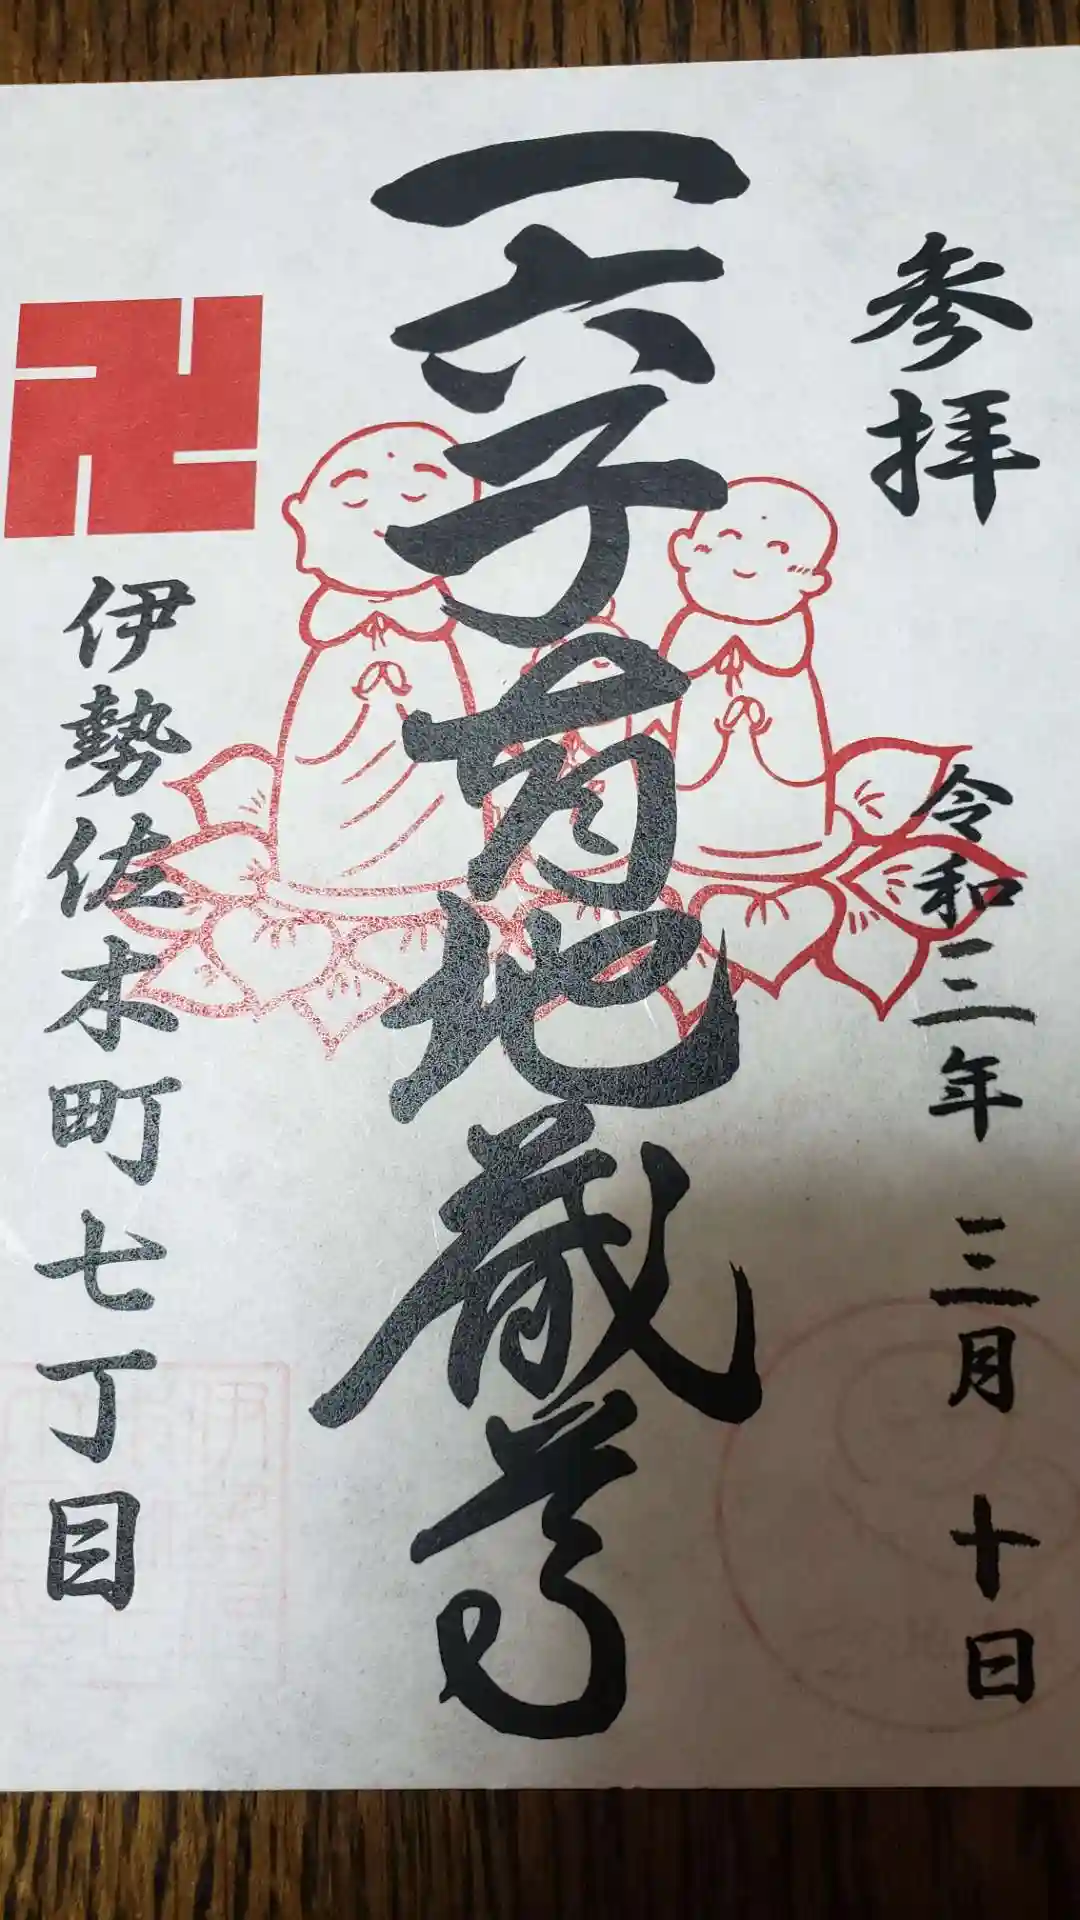 参拝
令和三年 三月 十日
一六子育地蔵尊
卍
伊勢佐木町七丁目